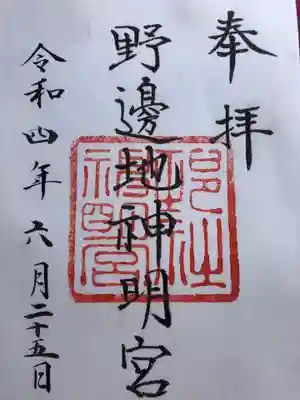 奉拝
野邊地神明宮
令和四年六月二十五日